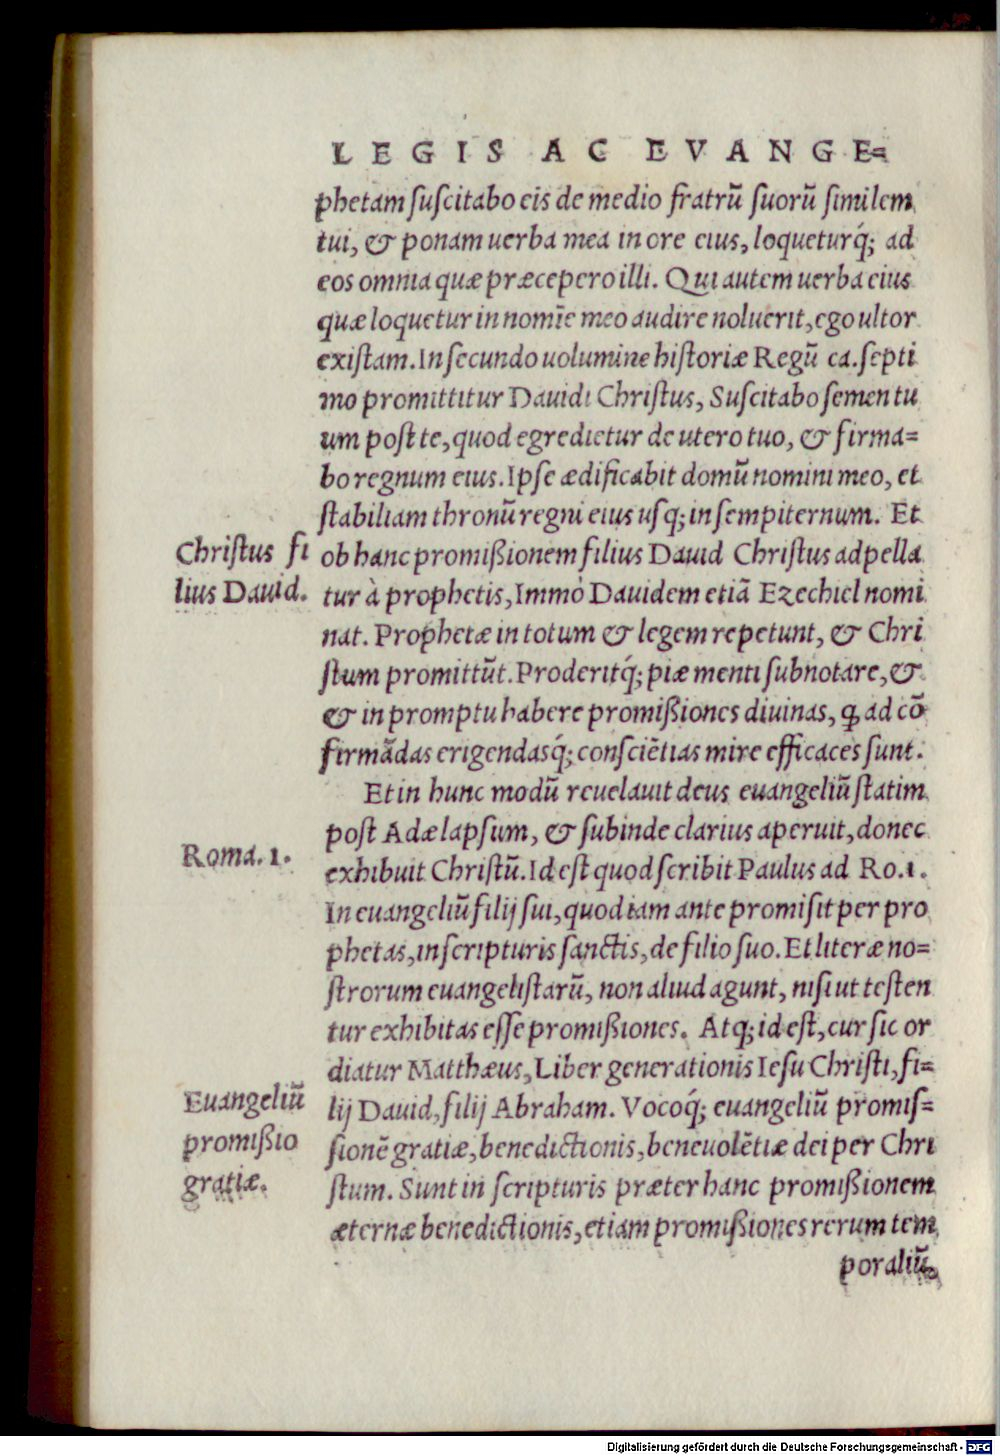 LEGIS AC EVANGE=
phetam ſuſcitabo eis de medio fratrũ ſuorũ ſimilem
tui, & ponam uerba mea in ore eius, loqueturq́; ad
eos omnia quæ præcepero illi. Qui autem uerba eius
quæ loquetur in nomĩe meo audire noluerit, ego ultor
exiſtam. In ſecundo uolumine hiſtoriæ Regũ ca. ſepti
mo promittitur Dauidi Chriſtus, Suſcitabo ſemen tu
um poſt te, quod egredietur de utero tuo, & firma=
bo regnum eius. Ipſe ædificabit domũ nomini meo, et
ſtabiliam thronũ regni eius uſq; in ſempiternum. Et
Chriſtus fi
lius Dauid.
ob hanc promißionem filius Dauid Chriſtus adpella
tur à prophetis, Immò Dauidem etiã Ezechiel nomi
nat. Prophetæ in totum & legem repetunt, & Chri
ſtum promittũt. Proderitq́; piæ menti ſubnotare, &
& in promptu habere promißiones diuinas, ꝙ ad cõ
firmãdas erigendasq́; conſciẽtias mire efficaces ſunt.
Et in hunc modũ reuelauit deus euangeliũ ſtatim
poſt Adæ lapſum, & ſubinde clarius aperuit, donec
Roma. 1.
exhibuit Chriſtũ. Id eſt quod ſcribit Paulus ad Ro. 1.
In euangeliũ filij ſui, quod iam ante promiſit per pro
phetas, in ſcripturis ſanctis, de filio ſuo. Et literæ no=
ſtrorum euangeliſtarũ, non aliud agunt, niſi ut teſten
tur exhibitas eſſe promißiones. Atq; id eſt, cur ſic or
diatur Matthæus, Liber generationis Ieſu Chriſti, fi=
lij Dauid, filij Abraham. Vocoq́; euangeliũ promiſ=
Euangeliũ
promißio
gratiæ.
ſionẽ gratiæ, benedictionis, beneuolẽtiæ dei per Chri
ſtum. Sunt in ſcripturis præter hanc promißionem
æternæ benedictionis, etiam promißiones rerum tem
poraliũ,
Digitalisierung gefördert durch die Deutsche Forschungsgemeinschaft - DFG